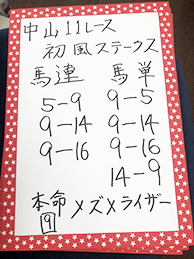 中山11レース
初風ステークス
馬連 馬単
5-9 9-5
9-14 9-14
9-16 9-16
14-9
本命 メズメライザー
9